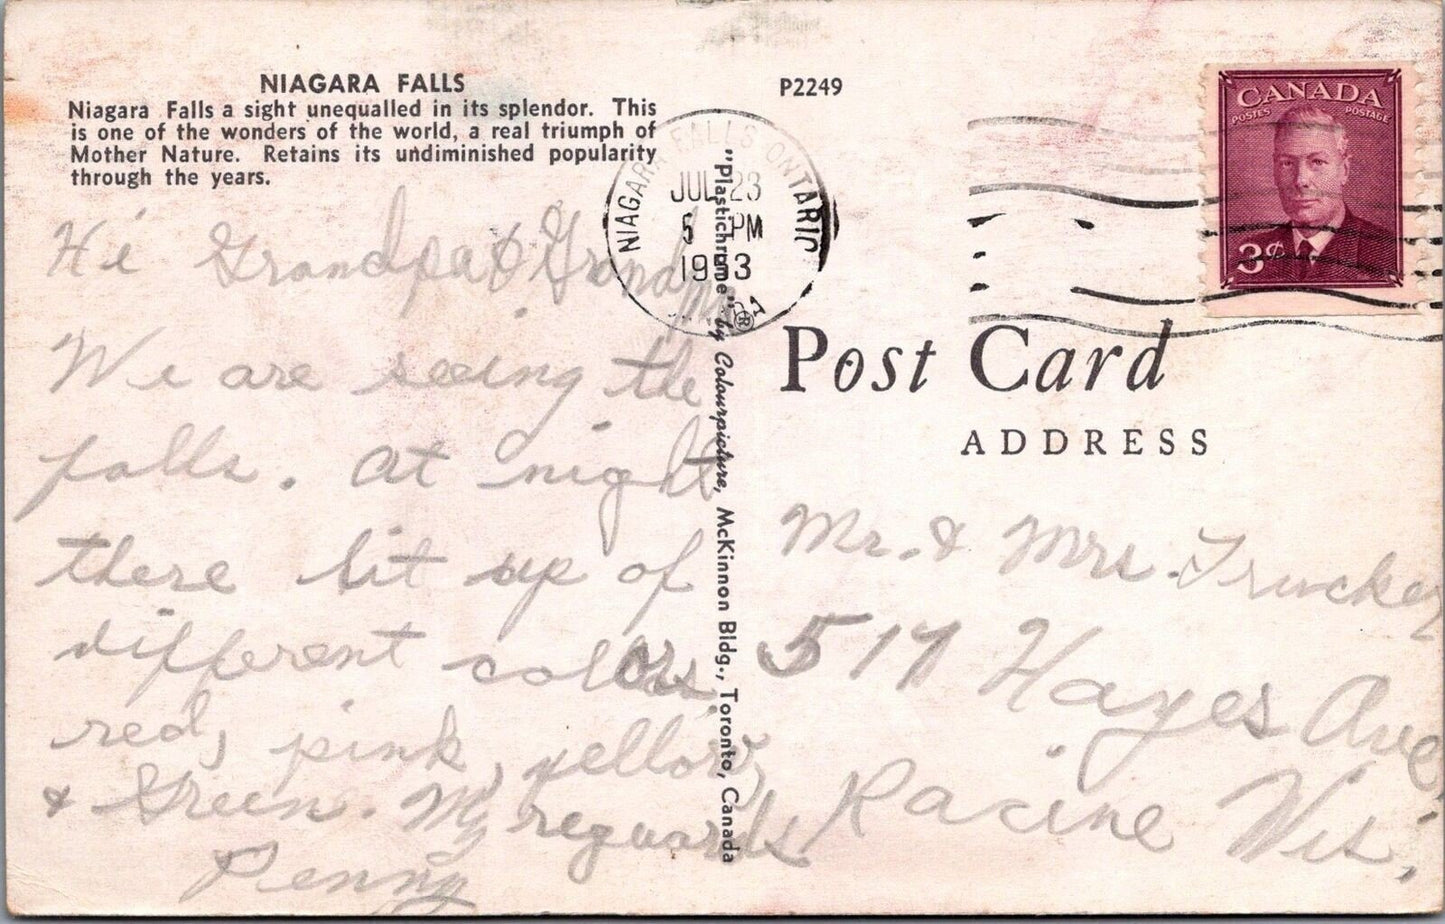 NIAGARA FALLS
Niagara Falls a sight unequalled in its splendor. This
is one of the wonders of the world, a real triumph of
Mother Nature. Retains its undiminished popularity
through the years.
Hi Grandpa & Grandma
We are seeing the
falls. At night
there lit up of
different colors.
red, pink, yellow,
& Green. My reguards
Penny
P2249
NIAGARA FALLS ONTARIO
JUL 23
5 PM
1953
"Plastichrome" ® by Colourpicture, McKinnon Bldg., Toronto, Canada
CANADA
POSTES POSTAGE
3¢
Post Card
ADDRESS
Mr. & Mrs. Trucker
517 Hayes Ave,
Racine Wis.